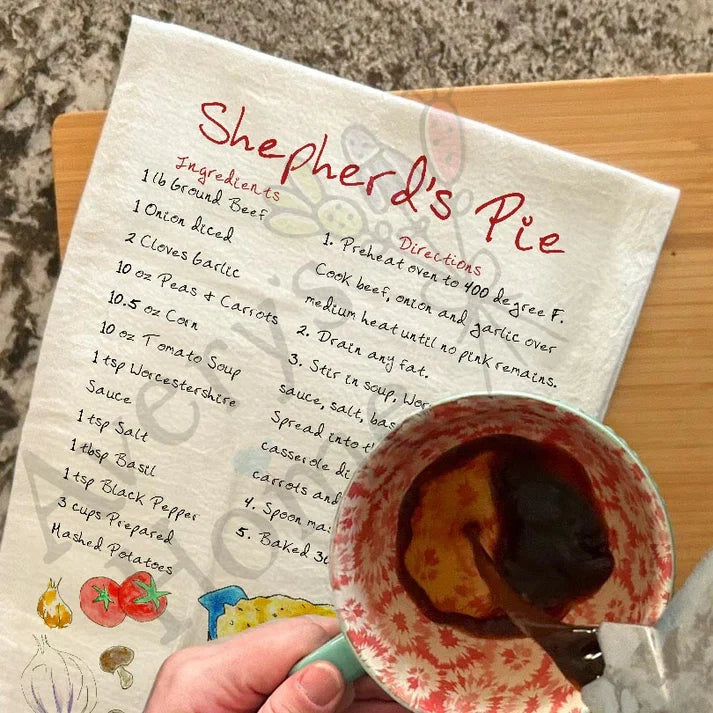 Shepherd's Pie
Ingredients
1 lb Ground Beef
1 Onion diced
2 Cloves Garlic
10 oz Peas & Carrots
10.5 oz Corn
10 oz Tomato Soup
1 tsp Worcestershire
Sauce
1 tsp Salt
1 tbsp Basil
1 tsp Black Pepper
3 cups Prepared
Mashed Potatoes
Directions
1. Preheat oven to 400 degree F.
Cook beef, onion and garlic over
medium heat until no pink remains.
2. Drain any fat.
3. Stir in soup,
sauce, salt,
Spread into
casserole
carrots and
4. Spoon
5. Baked
Avery's